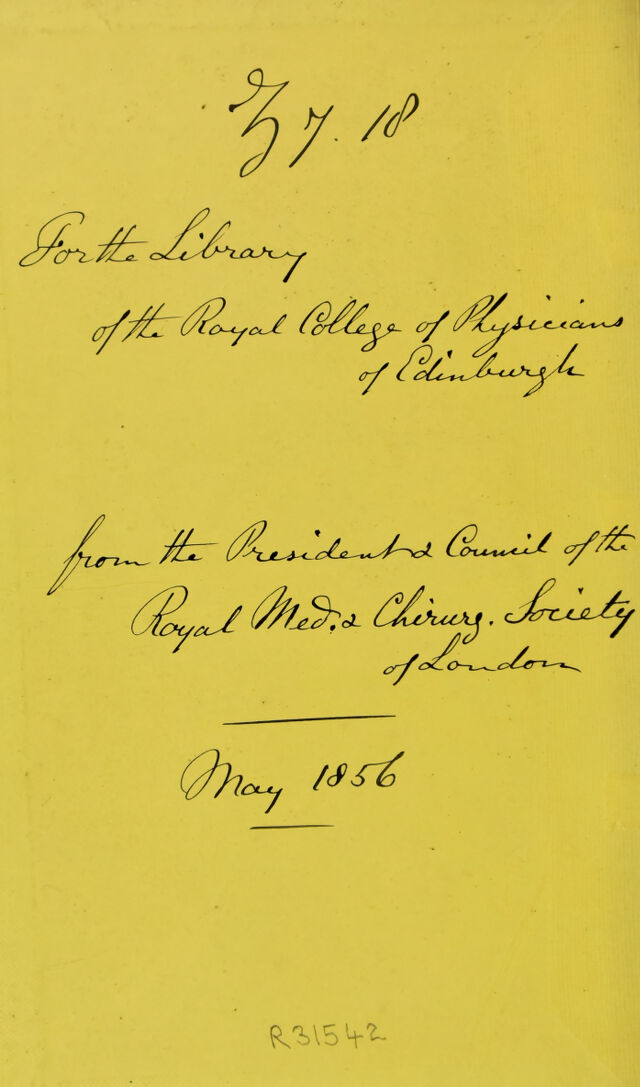 7. 18
For the Library
of the Royal College of Physicians
of Edinburgh
from the President & Council of the
Royal Med. & Chirurg. Society
of London
May 1856
R31542